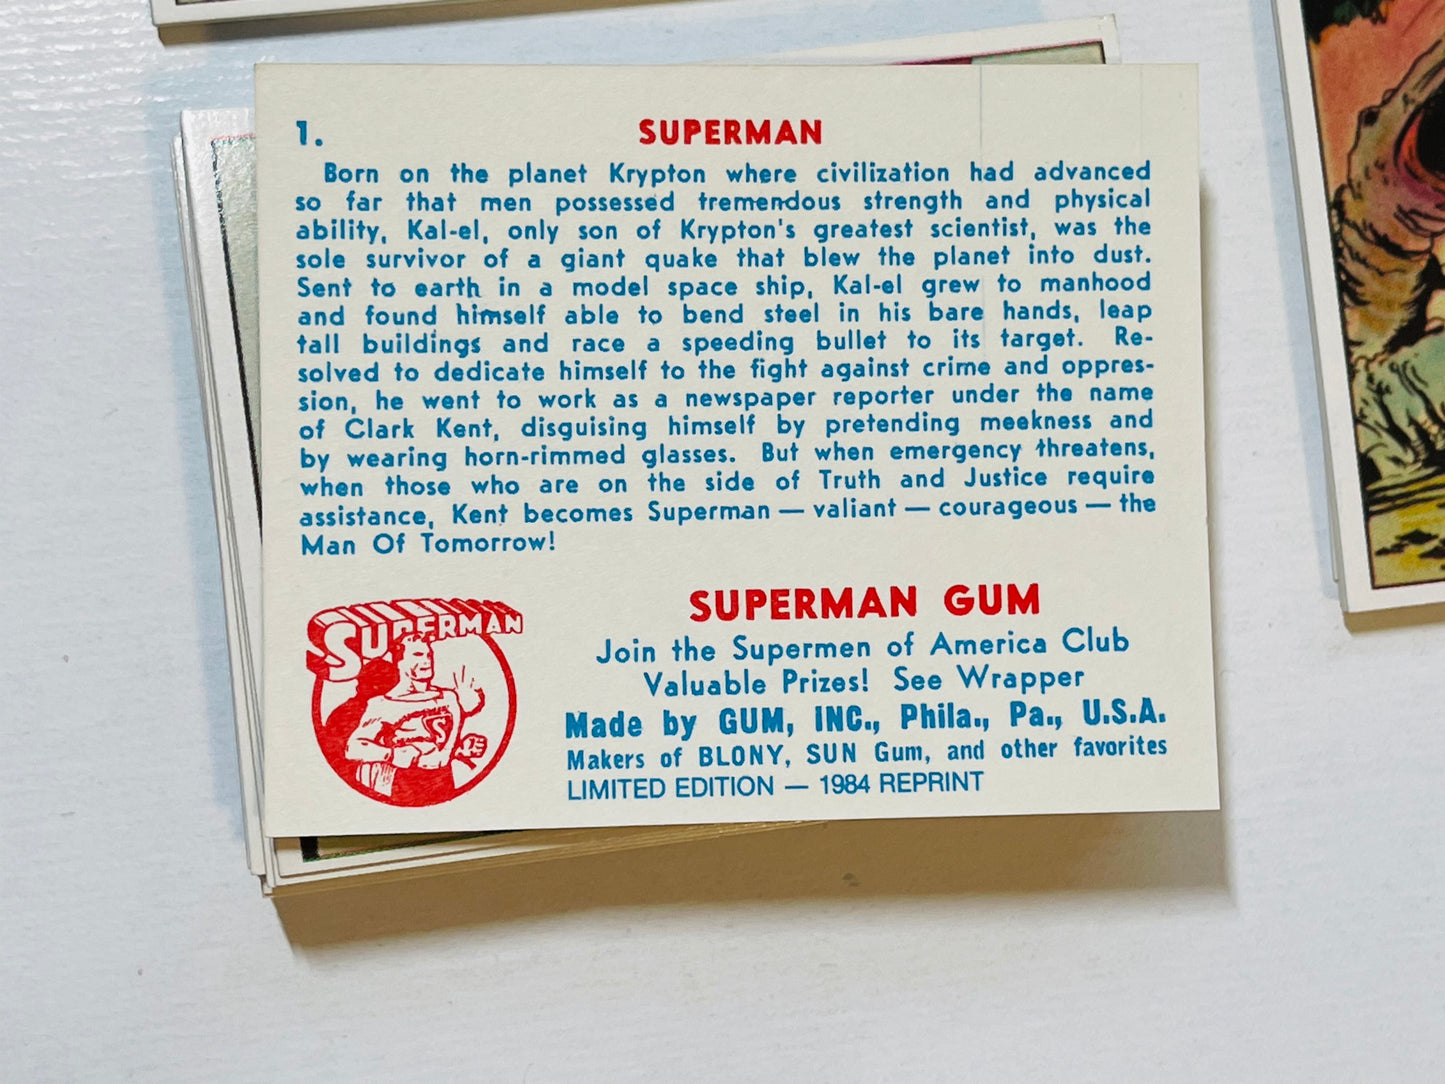 1. SUPERMAN
Born on the planet Krypton where civilization had advanced
so far that men possessed tremendous strength and physical
ability, Kal-el, only son of Krypton's greatest scientist, was the
sole survivor of a giant quake that blew the planet into dust.
Sent to earth in a model space ship, Kal-el grew to manhood
and found himself able to bend steel in his bare hands, leap
tall buildings and race a speeding bullet to its target. Re-
solved to dedicate himself to the fight against crime and oppres-
sion, he went to work as a newspaper reporter under the name
of Clark Kent, disguising himself by pretending meekness and
by wearing horn-rimmed glasses. But when emergency threatens,
when those who are on the side of Truth and Justice require
assistance, Kent becomes Superman — valiant — courageous — the
Man Of Tomorrow!
SUPERMAN
S
SUPERMAN GUM
Join the Supermen of America Club
Valuable Prizes! See Wrapper
Made by GUM, INC., Phila., Pa., U.S.A.
Makers of BLONY, SUN Gum, and other favorites
LIMITED EDITION — 1984 REPRINT